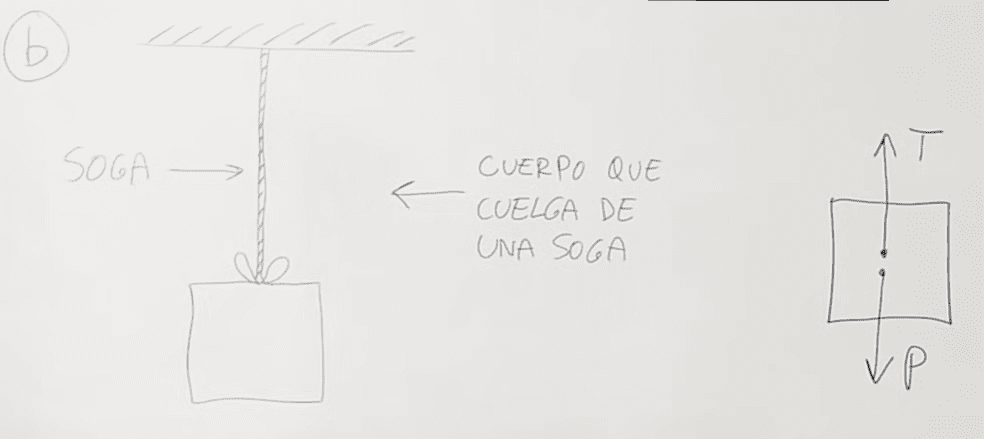 b
SOGA
CUERPO QUE
CUELGA DE
UNA SOGA
T
P